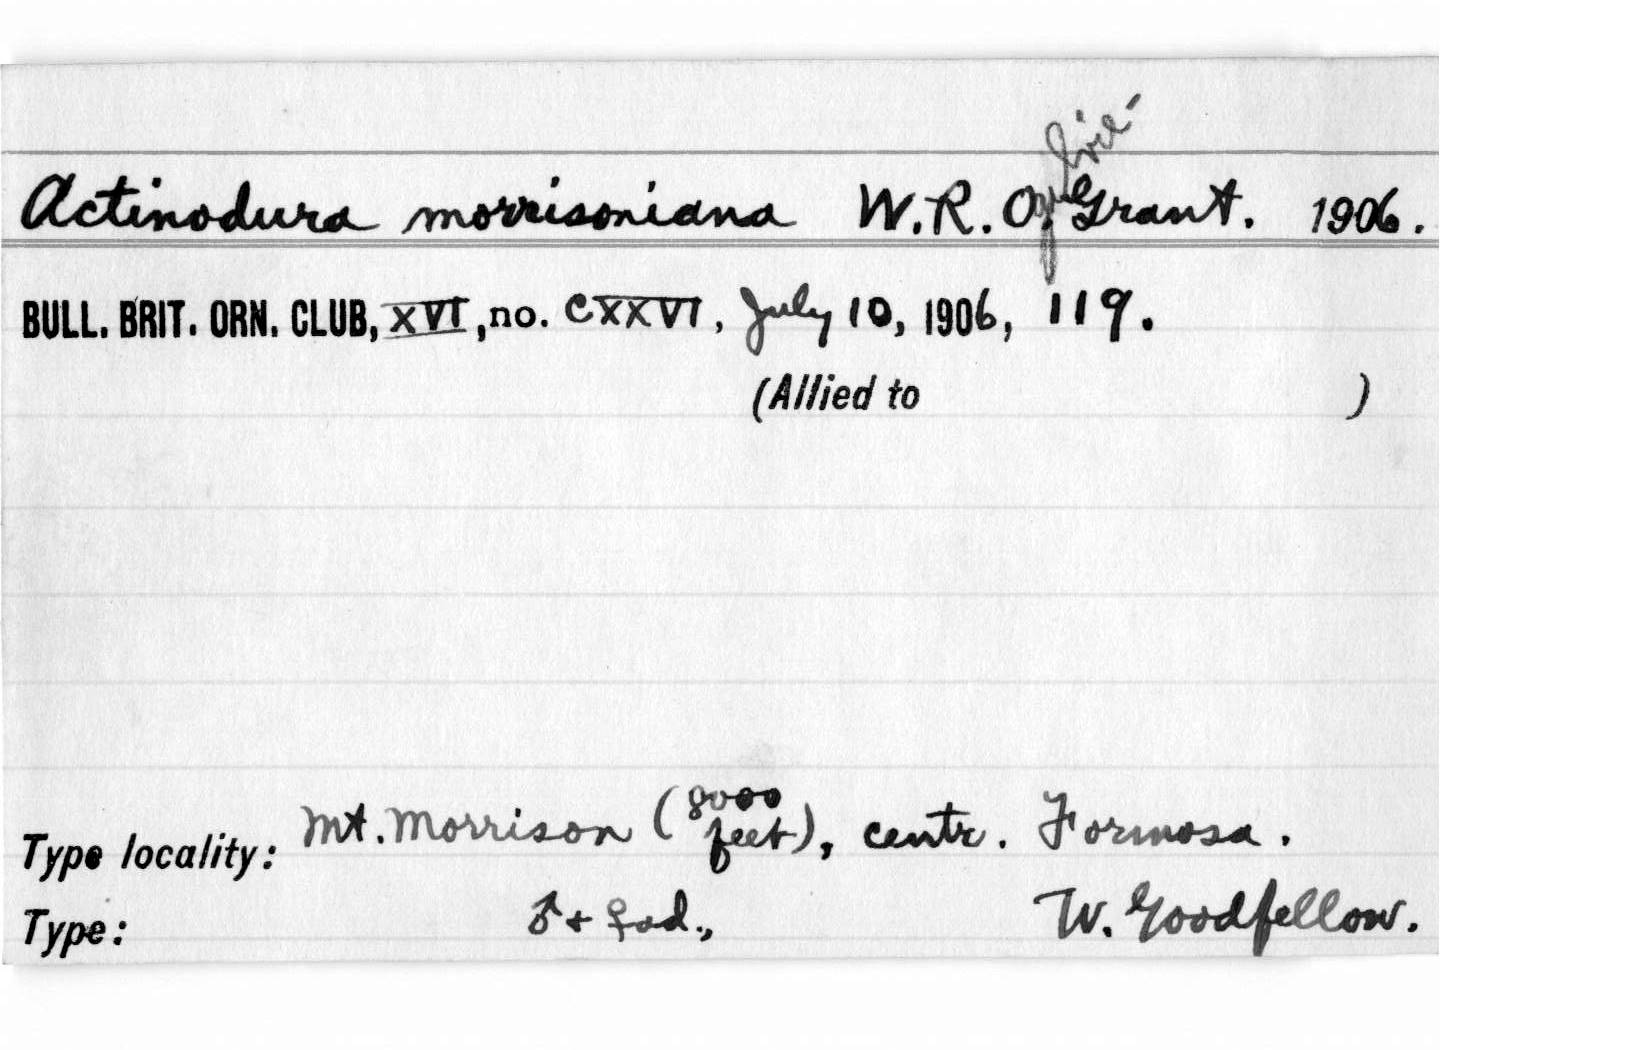 Actinodura morrisoniana W. R. Ogilvie-Grant. 1906.
BULL. BRIT. ORN. CLUB, XVI, no. CXXVI, July 10, 1906, 119.
(Allied to )
Type locality: Mt. Morrison (8000 feet), centr. Formosa.
Type: ♂ + ♀ ad., W. Goodfellow.